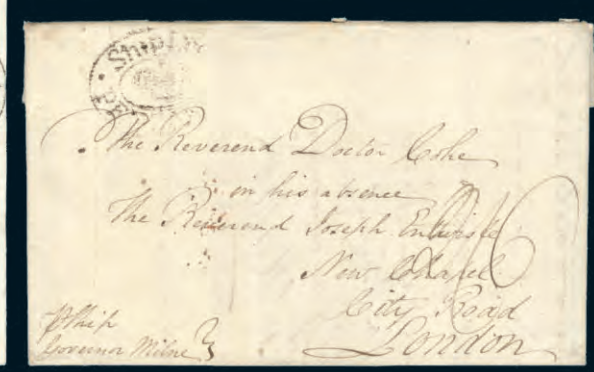 Ship L
The Reverend Doctor Coke
in his absence
The Reverend Joseph Entwisle
New Chapel
City Road
London
p Ship
Governor Milne